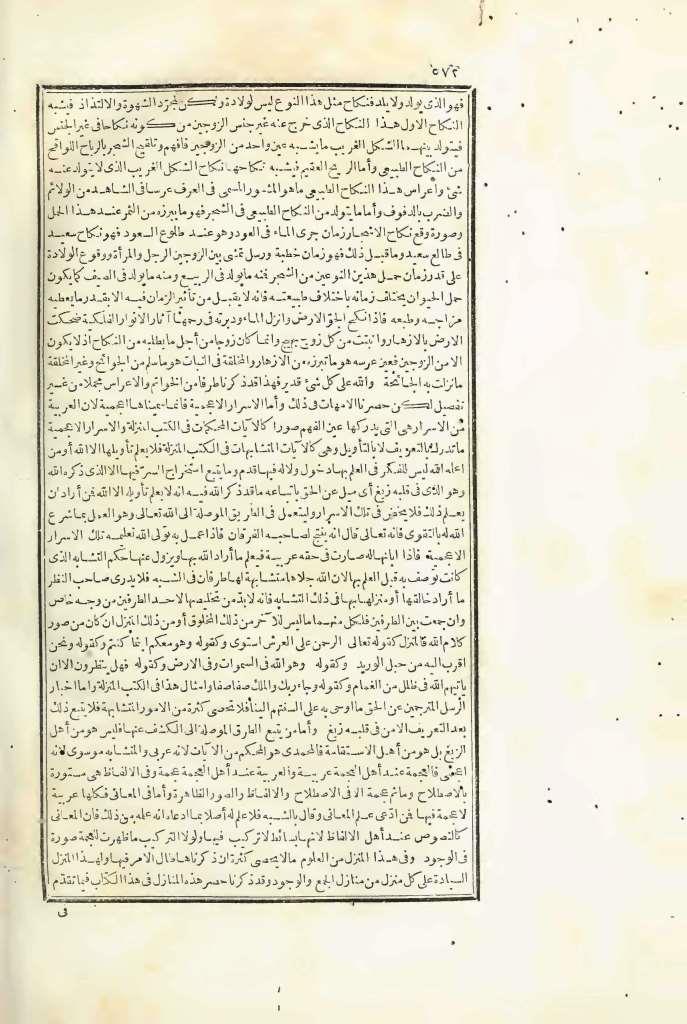 ٥٧٢
فهو الذى يولد ولا يلد فنكاح مثل هذا النوع ليس لولادة ولكن لمجرد الشهوة والالتذاذ فيشبه
النكاح الاول هذا النكاح الذى خرج عنه غير جنس الزوجين من كونه نكاحا فى غير الجنس
فيتولد بينهما الشكل الغريب ما يشبه عين واحد من الزوجين فافهم وتلقيح الشجر بالرياح اللواقح
من النكاح الطبيعى وأما الريح العقيم فيشبه نكاحها نكاح الشكل الغريب الذى لا يتولد عنه
شئ وأعراس هذا النكاح الطبيعى ما هو المشهور المسمى فى العرف عرسا فى الشاهد من الولائم
والضرب بالدفوف وأما ما يتولد من النكاح الطبيعى فى الشجر فهو ما يبرزه من الثمر عند هذا الحمل
وصورة وقع نكاح الاشجار زمان جرى الماء فى العود وهو عند طلوع السعود فهو نكاح سعيد
فى طالع سعيد وما قبل ذلك فهو زمان خطبة ورسل تمشى بين الزوجين الرجل والمرأة ووقوع الولادة
على قدر زمان حمل هذين النوعين من الشجر فمنه ما يولد فى الربيع ومنه ما يولد فى الصيف كما يكون
حمل الحيوان يختلف زمانه باختلاف طبيعته فانه لا يقبل من تأثير الزمان فيه الا بقدر ما يعطيه
مزاجه وطبعه فاذا نكح الجو الارض وانزل الماء ودبرته فى رحمها آثار الانوار الفلكية ضحكت
الارض بالازهار وانبتت من كل زوج بهيج وانما كان زوجا من أجل ما يطلبه من النكاح اذ لا يكون
الا من الزوجين فعين عرسه هو ما تبرزه من الازهار والمخلقة فى النبات هو ما سلم من الجوائح وغير المخلقة
ما نزلت به الجائحة والله على كل شئ قدير فهذا قد ذكرنا طرفا من الخواتم والاعراس مجملا من غير
تفصيل لكن حصرنا الامهات فى ذلك وأما الاسرار الاعجمية فانما سميناها اعجمية لان العربية
من الاسرار هى التى يدركها عين الفهم صورا كالآيات المحكمات فى الكتب المنزلة والاسرار الاعجمية
ما تدرك بالتعريف لا بالتأويل وهى كالآيات المتشابهات فى الكتب المنزلة فلا يعلم تأويلها الا الله أو من
اعلمه الله ليس للفكر فى العلم بها دخول ولا له فيها قدم وما يتبع استخراج السر فيها الا الذى ذكره الله
وهو الذى فى قلبه زيغ أى ميل عن الحق باتباعه ما قد ذكر الله فيه انه لا يعلم تأويله الا الله فمن أراد ان
يعلم ذلك فلا يخض فى تلك الاسرار وليتعمل فى الطريق الموصلة الى الله تعالى وهو العمل بما شرع
الله له بالتقوى فانه تعالى قال انه ينتج لصاحبه الفرقان فاذا عمل به تولى الله تعليمه تلك الاسرار
الاعجمية فاذا ابانها له صارت فى حقه عربية فيعلم ما أراد الله بها ويزول عنها حكم التشابه الذى
كانت توصف به قبل العلم بها لان الله جعلها متشابهة لها طرفان فى الشبه فلا يدرى صاحب النظر
ما أراد خالقها أو منزلها بها فى ذلك التشابه فانه لا بد من تخليصها لاحد الطرفين من وجه خاص
وان جمعت بين الطرفين فلكل منهما ما ليس للآخر من ذلك المخلوق أو من ذلك المنزل ان كان من صور
كلام الله فالمنزل كقوله تعالى الرحمن على العرش استوى وكقوله وهو معكم اينما كنتم وكقوله ونحن
اقرب اليه من حبل الوريد وكقوله وهو الله فى السموات وفى الارض وكقوله فهل ينظرون الا ان
يأتيهم الله فى ظلل من الغمام وكقوله وجاء ربك والملك صفا صفا وامثال هذا فى الكتب المنزلة واما اخبار
الرسل المترجمين عن الحق ما اوحى به على السنتهم الينا فلا تحصى كثرة من الامور المتشابهة فلا يتبع ذلك
بعد التعريف الا من فى قلبه زيغ وأما من يتبع الطرق الموصلة الى الكشف عنها فليس هو من أهل
الزيغ بل هو من أهل الاستقامة فالمحمدى هو المحكم من الآيات لانه عربى والمتشابه موسوى لانه
اعجمى فالعجمة عند أهل العجمة عربية والعربية عند أهل العجمة عجمة وفى الالفاظ هى مستورة
بالاصطلاح وما ثم عجمة الا فى الاصطلاح والالفاظ والصور الظاهرة وأما فى المعانى فكلها عربية
لا عجمة فيها فمن ادعى علم المعانى وقال بالشبه فلا علم له أصلا بما ادعاه انه علمه من ذلك فان المعانى
كالنصوص عند أهل الالفاظ لانها بسائط لا تركيب فيها ولولا التركيب ما ظهرت للعجمة صورة
فى الوجود وفى هذا المنزل من العلوم ما لا يحصى كثرة ان ذكرناها طال الامر فيها ولهذا المنزل
السيادة على كل منزل من منازل الجمع والوجود وقد ذكرنا حصر هذه المنازل فى هذا الكتاب فيما تقدم
فى